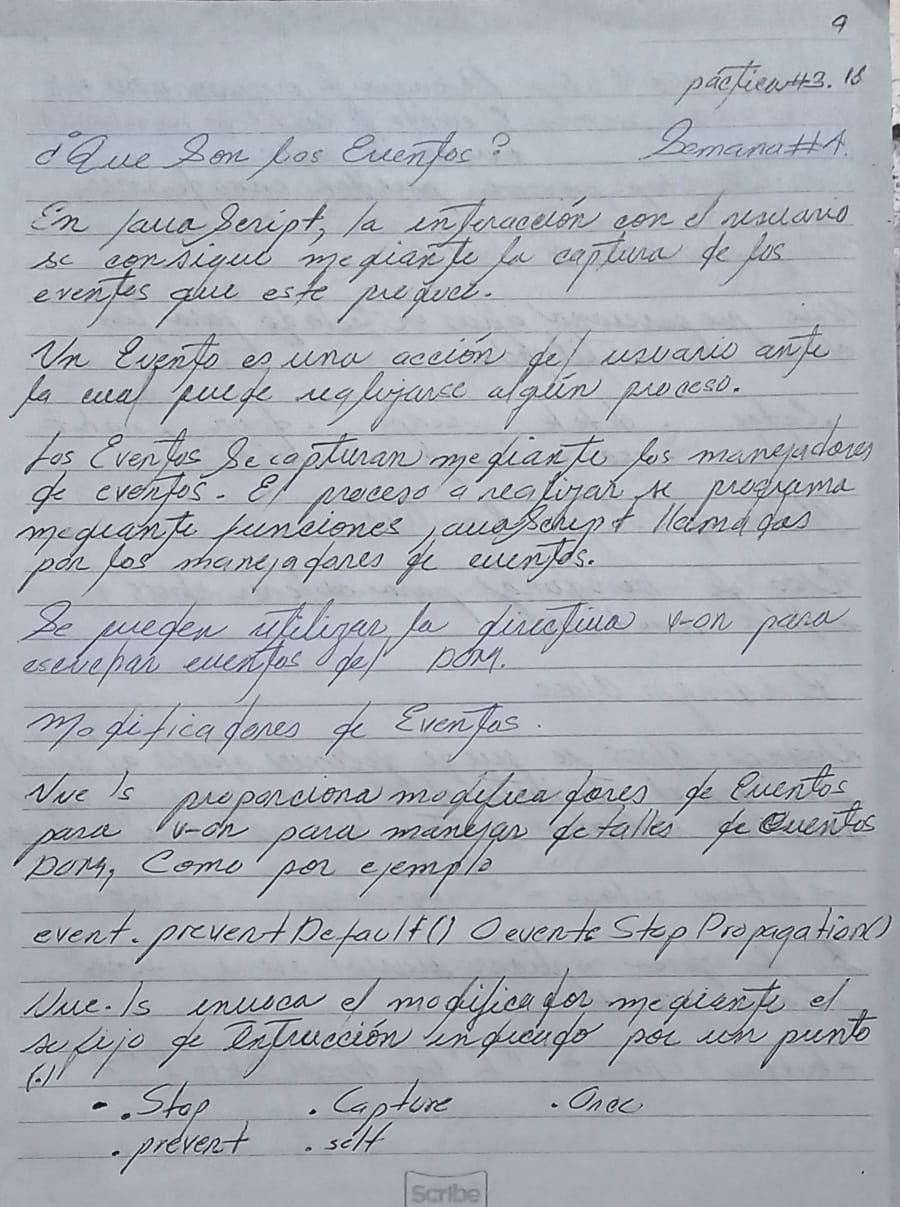 9
práctica #3. 18
¿Que Son los Eventos? Semana #4.
En JavaScript, la interacción con el usuario
se consigue mediante la captura de los
eventos que este produce.
Un Evento es una acción del usuario ante
la cual puede realizarse algún proceso.
Los Eventos Se capturan mediante los manejadores
de eventos. El proceso a realizar se programa
mediante funciones JavaScript llamadas
por los manejadores de eventos.
Se pueden utilizar la directiva v-on para
escuchar eventos del DOM.
Modificadores de Eventos.
Vue Js proporciona modificadores de Eventos
para v-on para manejar detalles de Eventos
DOM, Como por ejemplo
event.preventDefault() O event.StopPropagation()
Vue.Js invoca el modificador mediante el
sufijo de Intrucción indicado por un punto
(.)
- .Stop .Capture .Once
.prevent .self
Scribe